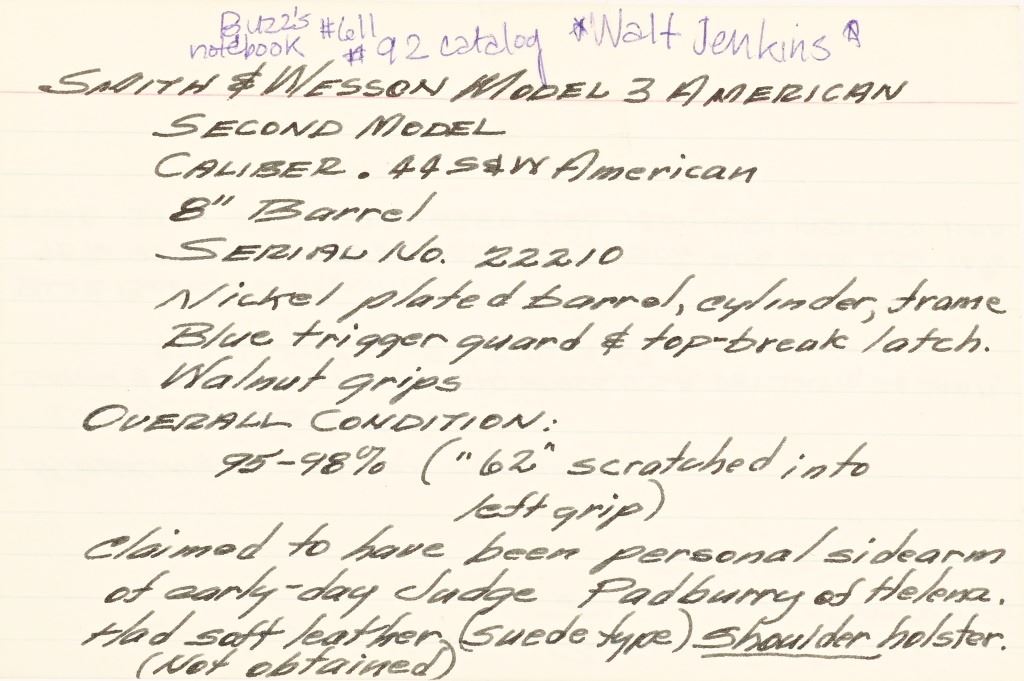 Buzz's #611
notebook #92 catalog *Walt Jenkins*
SMITH & WESSON MODEL 3 AMERICAN
SECOND MODEL
CALIBER .44 S&W American
8" Barrel
SERIAL NO. 22210
Nickel plated barrel, cylinder, frame
Blue trigger guard & top-break latch.
Walnut grips
OVERALL CONDITION:
95-98% ("62" scratched into
left grip)
Claimed to have been personal sidearm
of early-day Judge Padburry of Helena.
Had soft leather (suede type) shoulder holster.
(Not obtained)